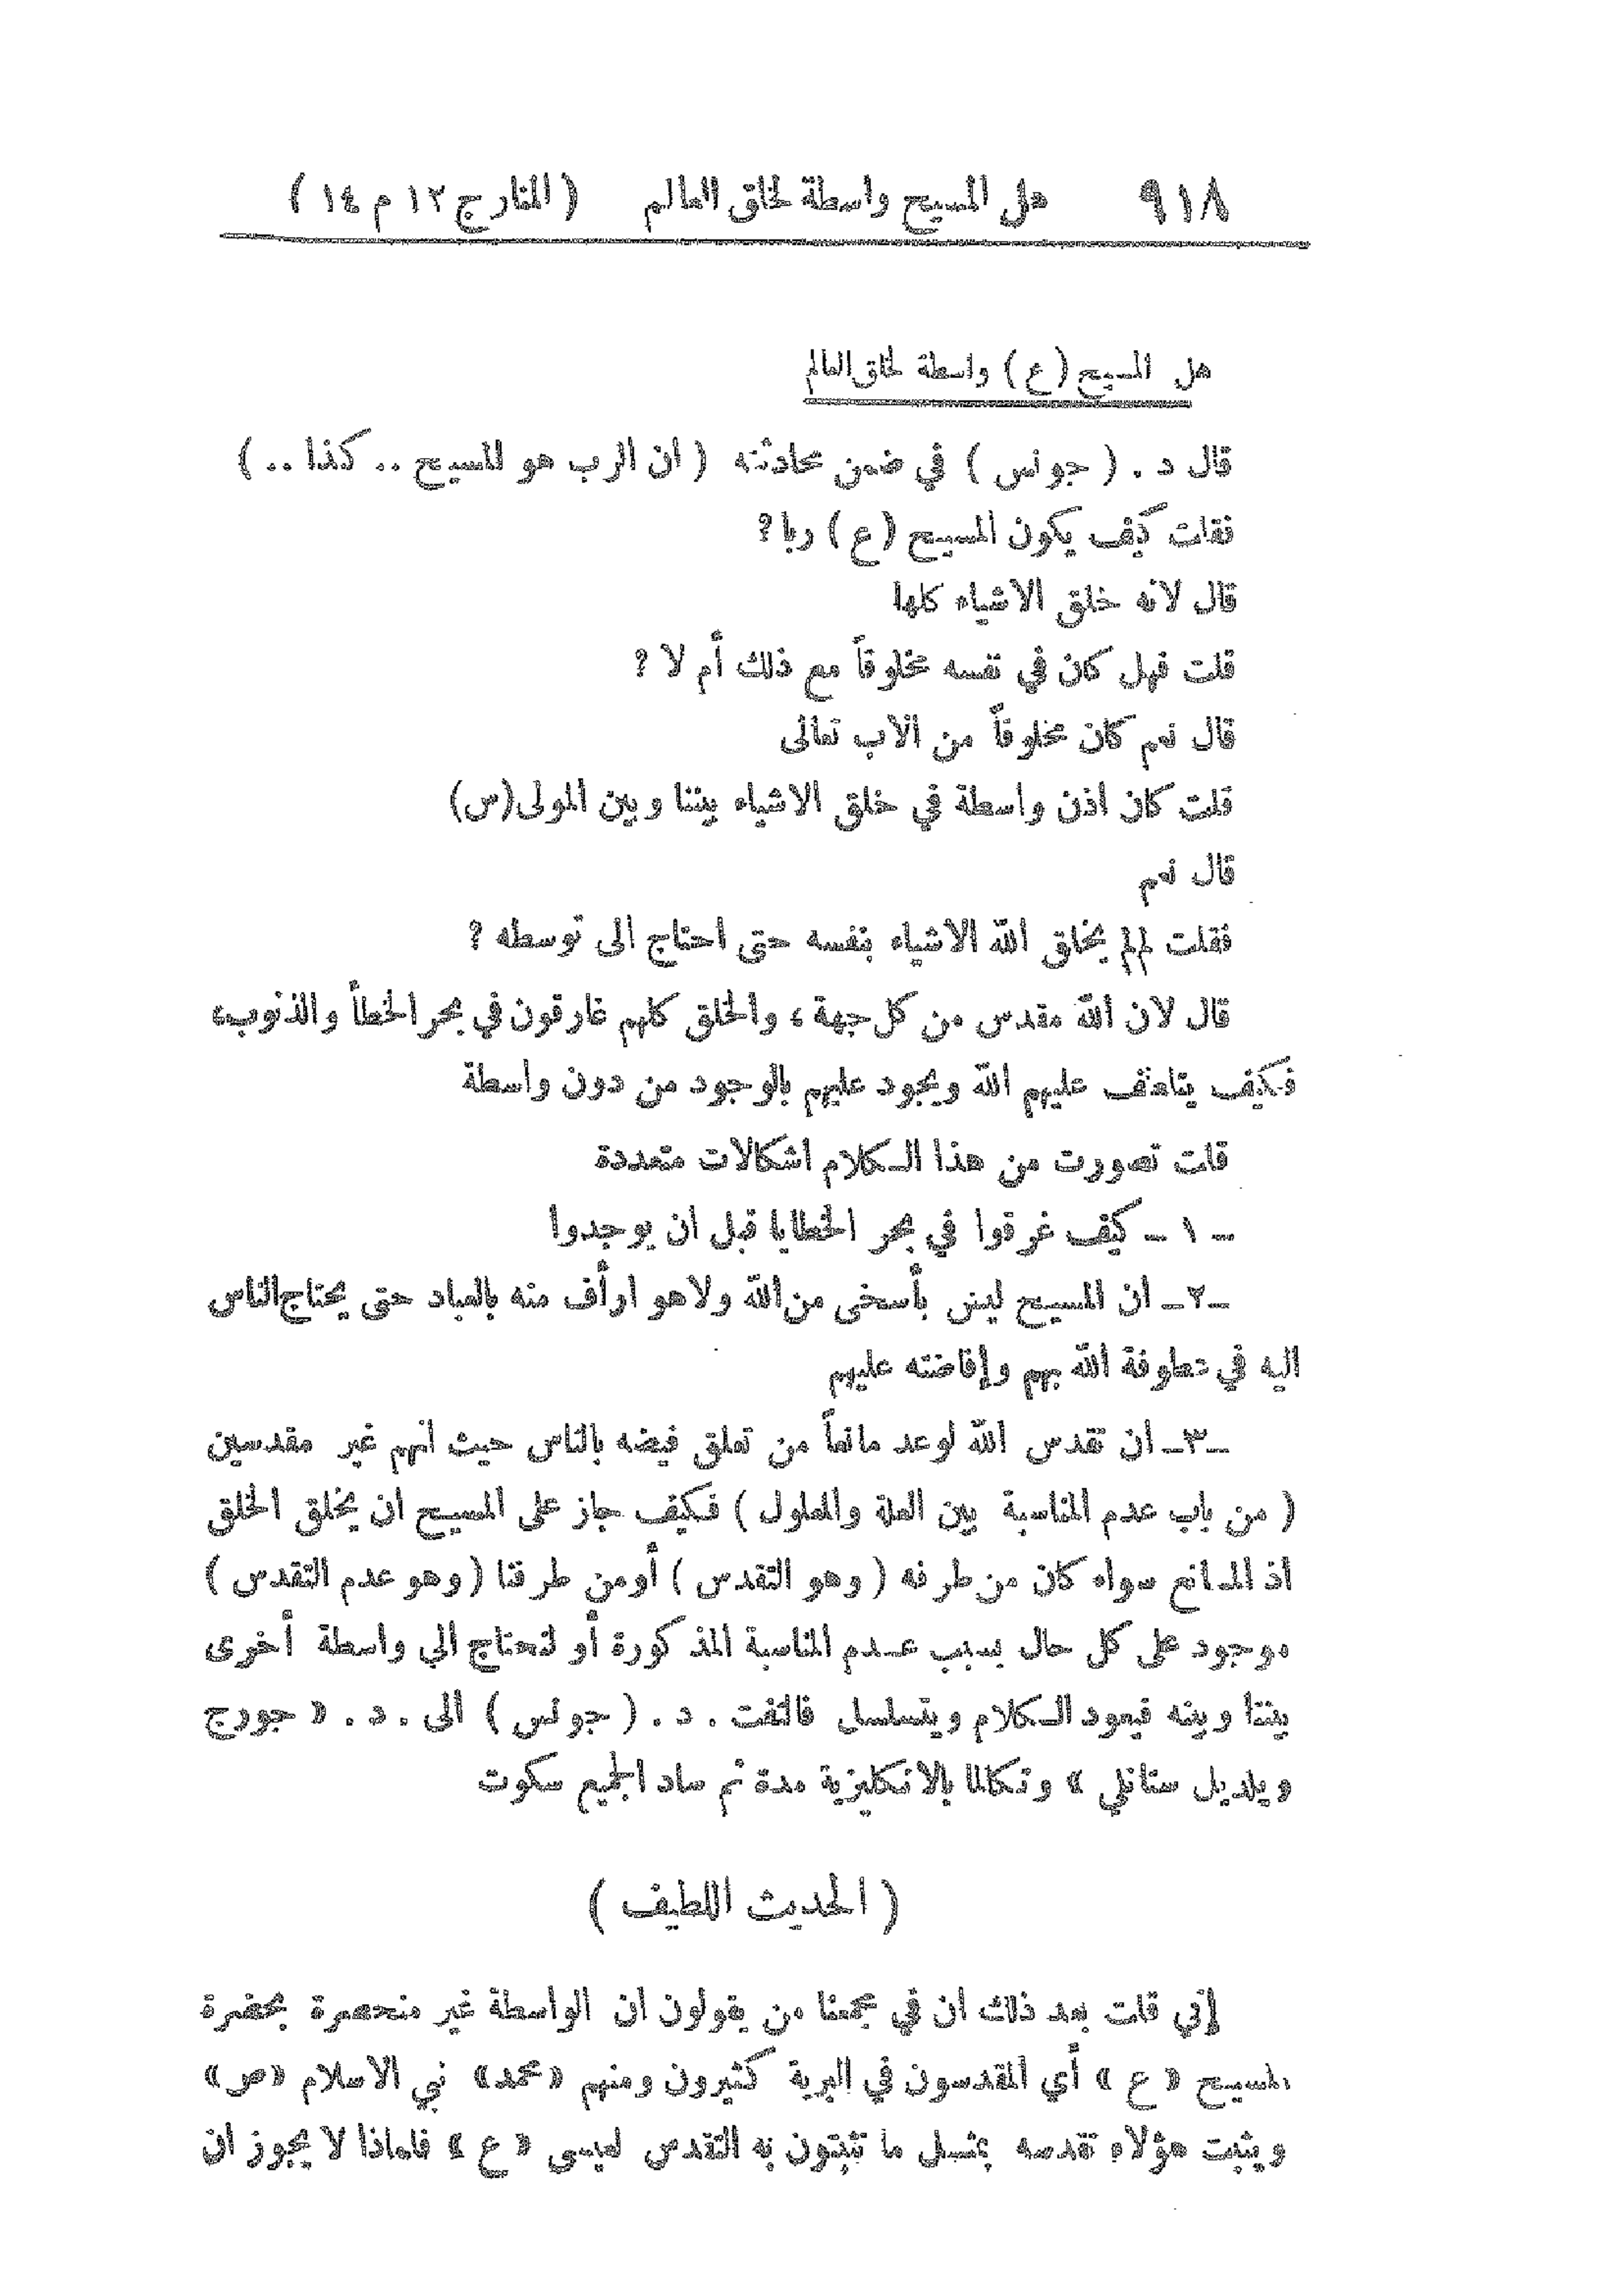 ٩١٨ هل المسيح واسطة لخلق العالم ( المنار ج ١٢ م ١٤ )
هل المسيح (ع) واسطة لخلق العالم
قال د . ( جونس ) في ضمن محادثته ( ان الرب هو المسيح .. كذا .. )
فقلت كيف يكون المسيح (ع) ربا ؟
قال لانه خلق الاشياء كلها
قلت فهل كان في نفسه مخلوقاً مع ذلك أم لا ؟
قال نعم كان مخلوقاً من الاب تعالى
قلت كان اذن واسطة في خلق الاشياء بيننا وبين المولى (س)
قال نعم
فقلت لم لم يخلق الله الاشياء بنفسه حتى احتاج الى توسطه ؟
قال لان الله مقدس من كل جهة ، والخلق كلهم غارقون في بحر الخطأ والذنوب،
فكيف يتلطف عليهم الله ويجود عليهم بالوجود من دون واسطة
قلت تصورت من هذا الكلام اشكالات متعددة
ـ ١ ـ كيف غرقوا في بحر الخطايا قبل ان يوجدوا
ـ٢ـ ان المسيح ليس بأسخى من الله ولا هو ارأف منه بالعباد حتى يحتاج الناس
اليه في عطوفة الله بهم وإفاضته عليهم
ـ٣ـ ان تقدس الله لوعد مانعاً من تعلق فيضه بالناس حيث انهم غير مقدسين
( من باب عدم المناسبة بين العلة والمعلول ) فكيف جاز على المسيح ان يخلق الخلق
اذ المانع سواء كان من طرفه ( وهو التقدس ) أو من طرفنا ( وهو عدم التقدس )
موجود على كل حال بسبب عدم المناسبة المذكورة أو لنحتاج الي واسطة أخرى
بيننا وبينه فيعود الكلام ويتسلسل فالتفت . د . ( جونس ) الى . د . « جورج
ويلديل ستانلي » وتكالما بالانكليزية مدة ثم ساد الجميع سكوت
( الحديث اللطيف )
إني قلت بعد ذلك ان في مجمعنا من يقولون ان الواسطة غير منحصرة بحضرة
المسيح « ع » أي المقدسون في البرية كثيرون ومنهم «محمد» نبي الاسلام «ص»
ويثبت هؤلاء تقدسه بمثل ما تثبتون به التقدس لعيسى « ع » فلماذا لا يجوز ان